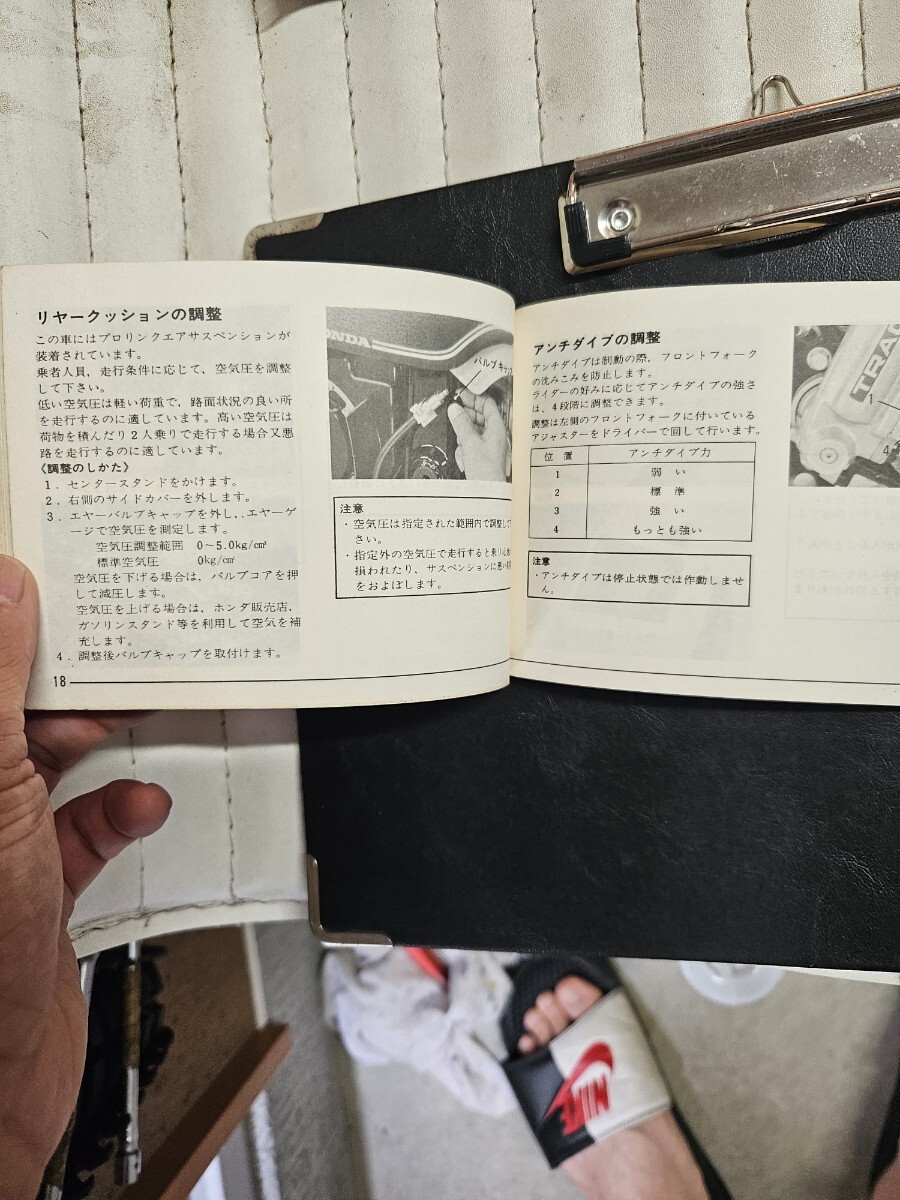 リヤークッションの調整
この車にはプロリンクエアサスペンションが
装着されています。
乗者人員，走行条件に応じて，空気圧を調整
して下さい。
低い空気圧は軽い荷重で，路面状況の良い所
を走行するのに適しています。高い空気圧は
荷物を積んだり２人乗りで走行する場合又悪
路を走行するのに適しています。
〈調整のしかた〉
１．センタースタンドをかけます。
２．右側のサイドカバーを外します。
３．エヤーバルブキャップを外し，エヤーゲ
ージで空気圧を測定します。
空気圧調整範囲 0～5.0kg/cm²
標準空気圧 0kg/cm²
空気圧を下げる場合は，バルブコアを押
して減圧します。
空気圧を上げる場合は，ホンダ販売店，
ガソリンスタンド等を利用して空気を補
充します。
４．調整後バルブキャップを取付けます。
18
ONDA
バルブキャッ
注意
・空気圧は指定された範囲内で調整し
さい。
・指定外の空気圧で走行すると乗り
損われたり，サスペンションに悪い
をおよぼします。
アンチダイブの調整
アンチダイブは制動の際，フロントフォーク
の沈みこみを防止します。
ライダーの好みに応じてアンチダイブの強さ
は，4段階に調整できます。
調整は左側のフロントフォークに付いている
アジャスターをドライバーで回して行います。
位置 アンチダイブ力
1 弱い
2 標準
3 強い
4 もっとも強い
注意
・アンチダイブは停止状態では作動しませ
ん。
TRAC
1
4
NIKE